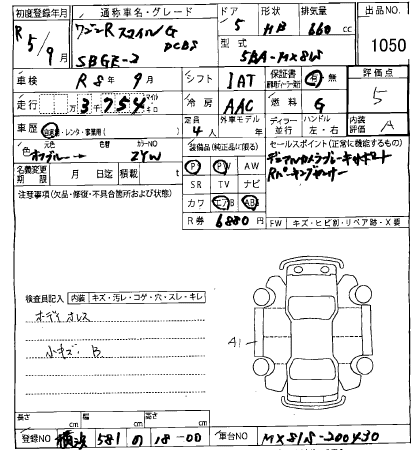 初度登録年月 通称車名・グレード ドア 形状 排気量 出品NO
R5/9月 ワゴンRスマイルG DCBS 5 HB 660 cc 1050
SBGE-2 型式 5BA-MX81S
車検 R8年9月 シフト IAT 保証書 有・無 評価点
走行 3,754 マイル キロ 冷房 AAC 燃料 G 5
車歴 自家用・レンタ・事業用( ) 定員 4人 外車モデル 年 ディーラー 並行 ハンドル 左・右 内装評価 A
色 元色 色替 カラーNO 装備品(純正品に限る) セールスポイント(正常に機能するもの)
ZYW P PW AW デュアルカメラブレーキサポート
名義変更期限 月 日迄 積載 t SR TV ナビ Rパーキングセンサー
注意事項(欠品・修復・不具合箇所および状態) カワ エアB ABS
R券 6880円 FW キズ・ヒビ割・リペア跡・X要
検査員記入 内装 キズ・汚レ・コゲ・穴・スレ・キレ
ボディオレス
小キズ B
A1
長さ cm 幅 cm 高さ cm
登録NO 横浜 581 の 18-00 車台NO MX81S-200430